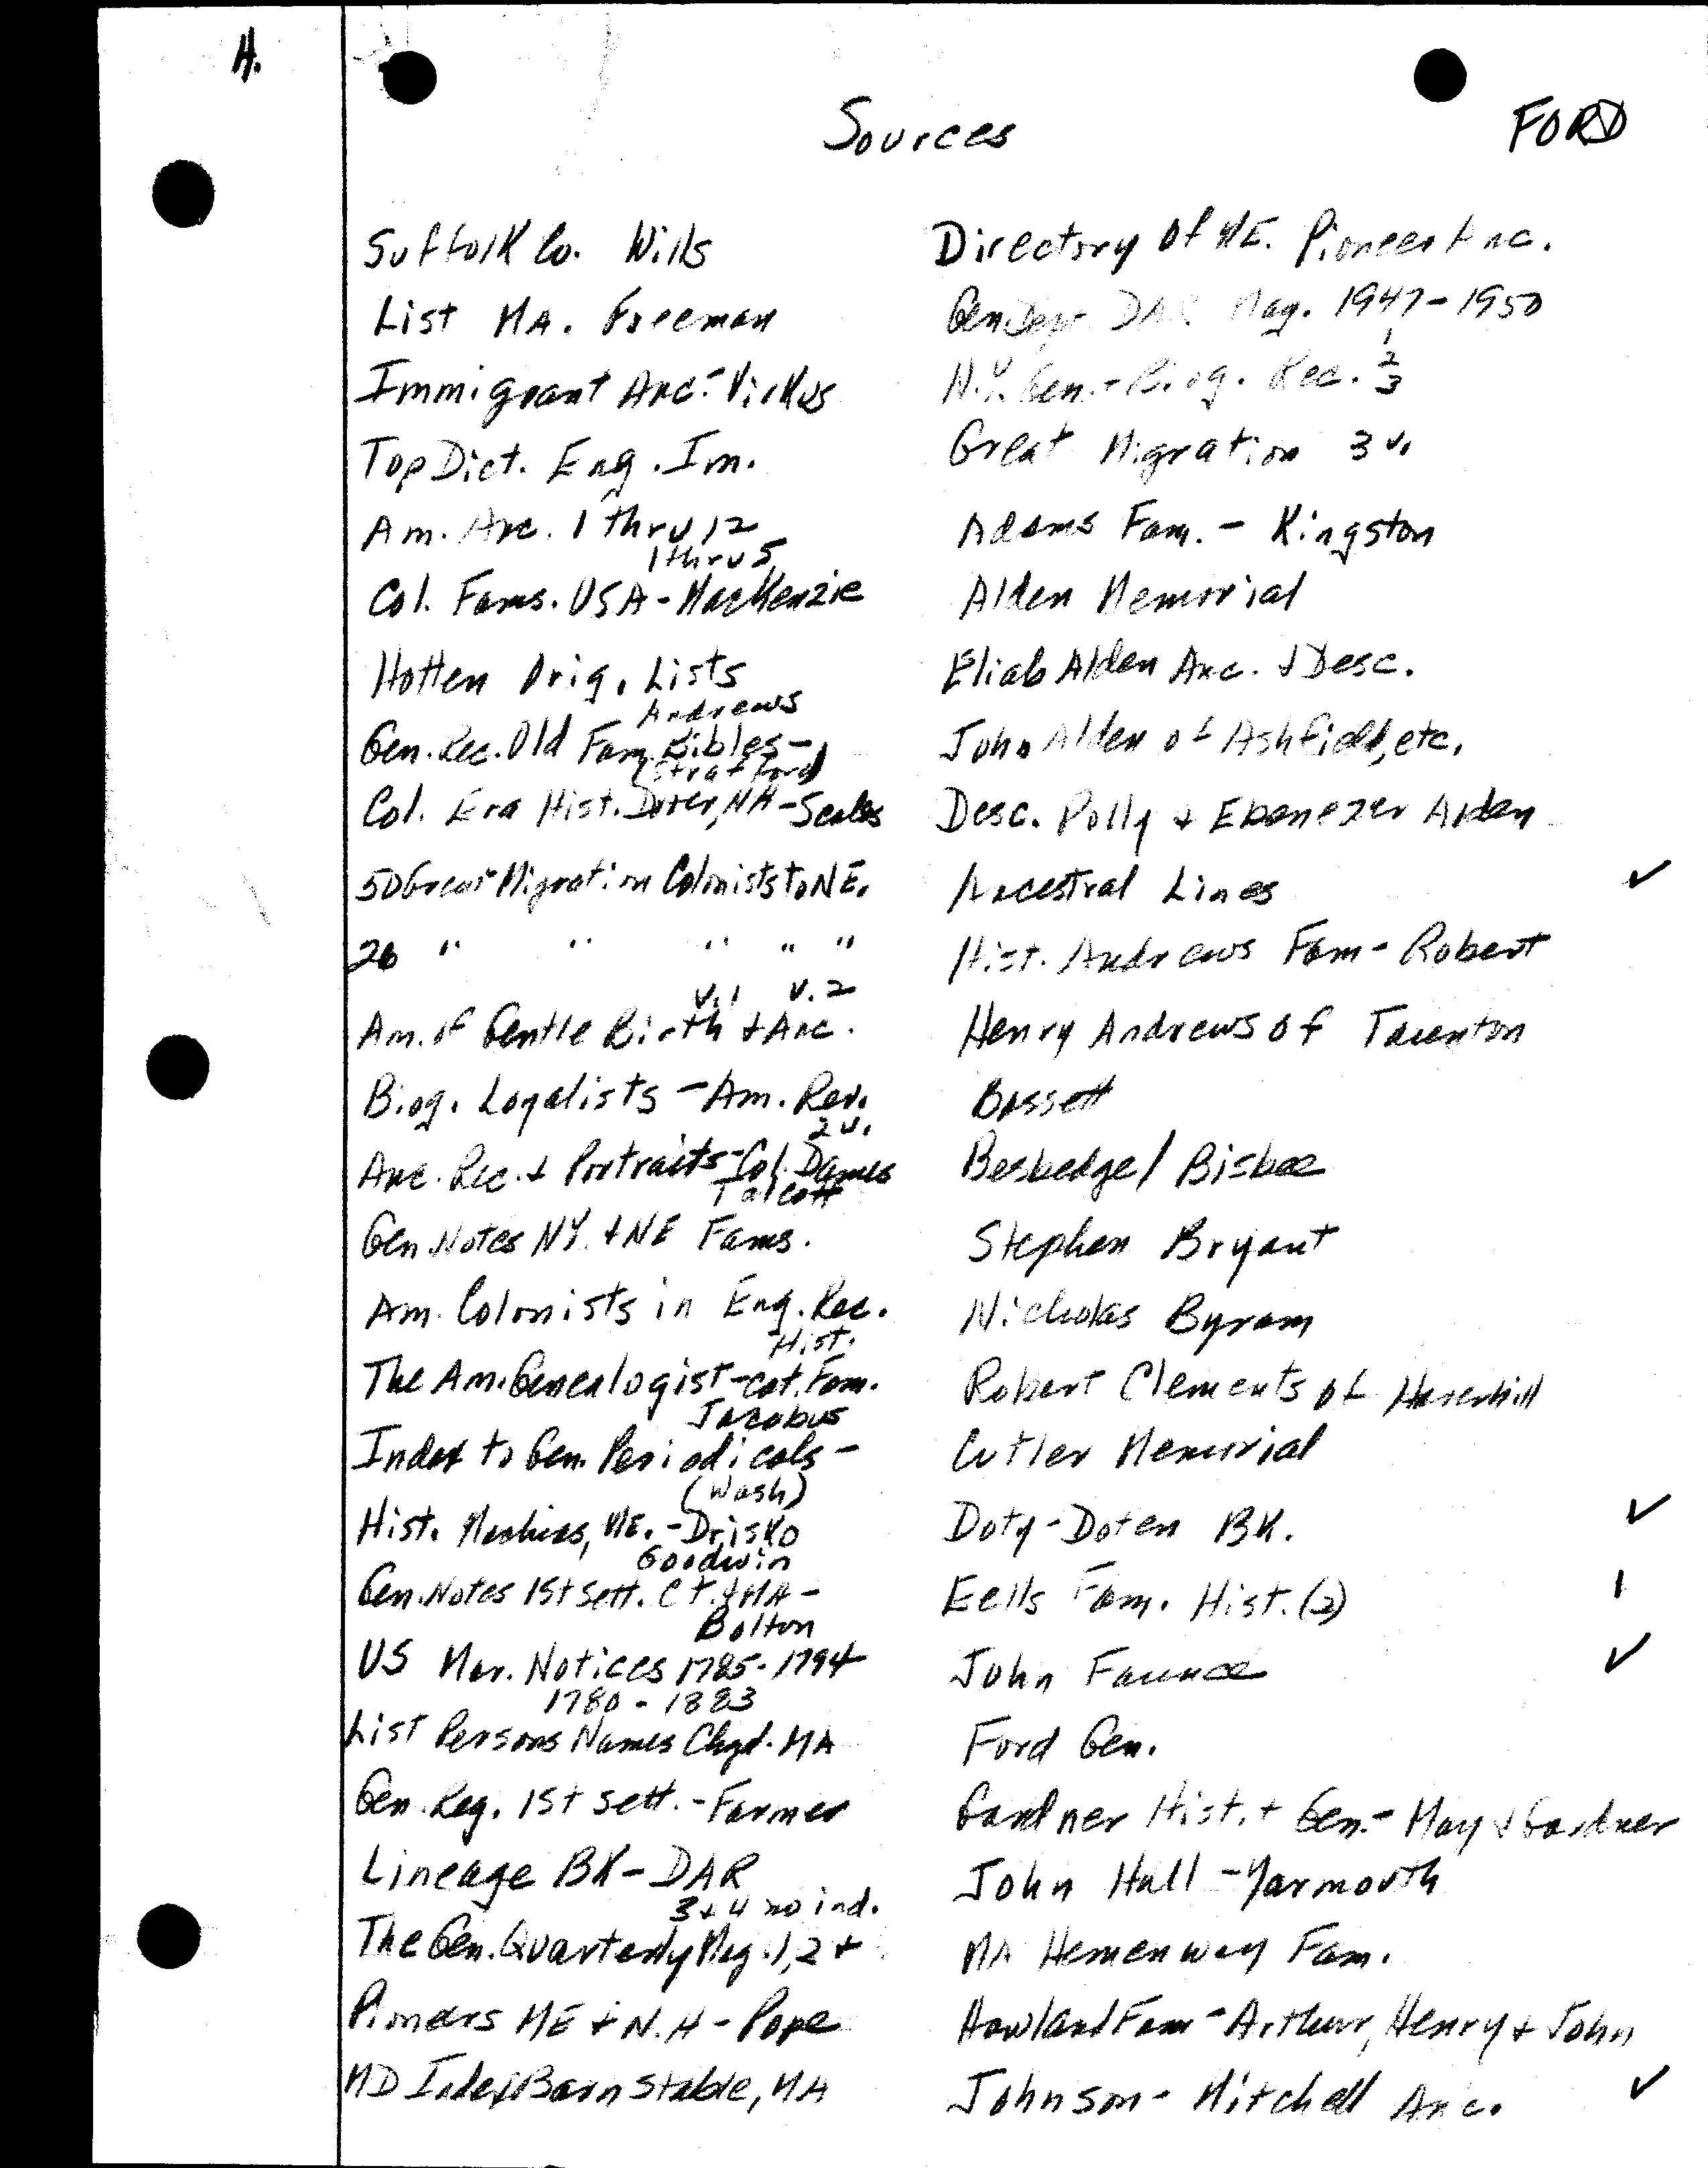 H.
Sources
FORD
Suffolk Co. Wills
List MA. Freeman
Immigrant Anc. - Virkus
Top Dict. Eng. Im.
Am. Anc. 1 thru 12
1 thru 5
Col. Fams. USA - MacKenzie
Hotten Orig. Lists
Andrews
Gen. Rec. Old Fam. Bibles -
(Stratford)
Col. Era Hist. Dover, NH - Scales
50 Great Migration Colonists to NE.
26 " " " " "
V.1 V.2
Am. of Gentle Birth + Anc.
Biog. Loyalists - Am. Rev.
2 v.
Anc. Rec. + Portraits - Col. Dames
Talcott
Gen. Notes NY. + NE Fams.
Am. Colonists in Eng. Rec.
Hist.
The Am. Genealogist - cat. Fam.
Jacobus
Index to Gen. Periodicals -
(Wash)
Hist. Machias, ME. - Drisko
Goodwin
Gen. Notes 1st Sett. Ct. + MA -
Bolton
US Mar. Notices 1785-1794
1780 - 1883
List Persons Names Chgd. MA
Gen. Reg. 1st Sett. - Farmer
Lineage BK - DAR
3 + 4 no ind.
The Gen. Quarterly Mag. 1, 2 +
Pioneers ME + N.H - Pope
MD Index Barnstable, MA
Directory of NE. Pioneer Anc.
Gen Dept DAR Mag. 1947-1950
N.Y. Gen. + Biog. Rec. 1 2 3
Great Migration 3 v.
Adams Fam. - Kingston
Alden Memorial
Eliab Alden Anc. + Desc.
John Alden of Ashfield, etc.
Desc. Polly + Ebenezer Alden
Ancestral Lines ✓
Hist. Andrews Fam - Robert
Henry Andrews of Taunton
Bassett
Besbedge / Bisbee
Stephen Bryant
Nicholas Byram
Robert Clements of Haverhill
Cutler Memorial
Doty-Doten BK. ✓
Eells Fam. Hist. (2) 1
John Faunce ✓
Ford Gen.
Gardner Hist. + Gen. - May + Gardner
John Hall - Yarmouth
MA Hemenway Fam.
Howland Fam - Arthur, Henry + John
Johnson - Mitchell Anc. ✓